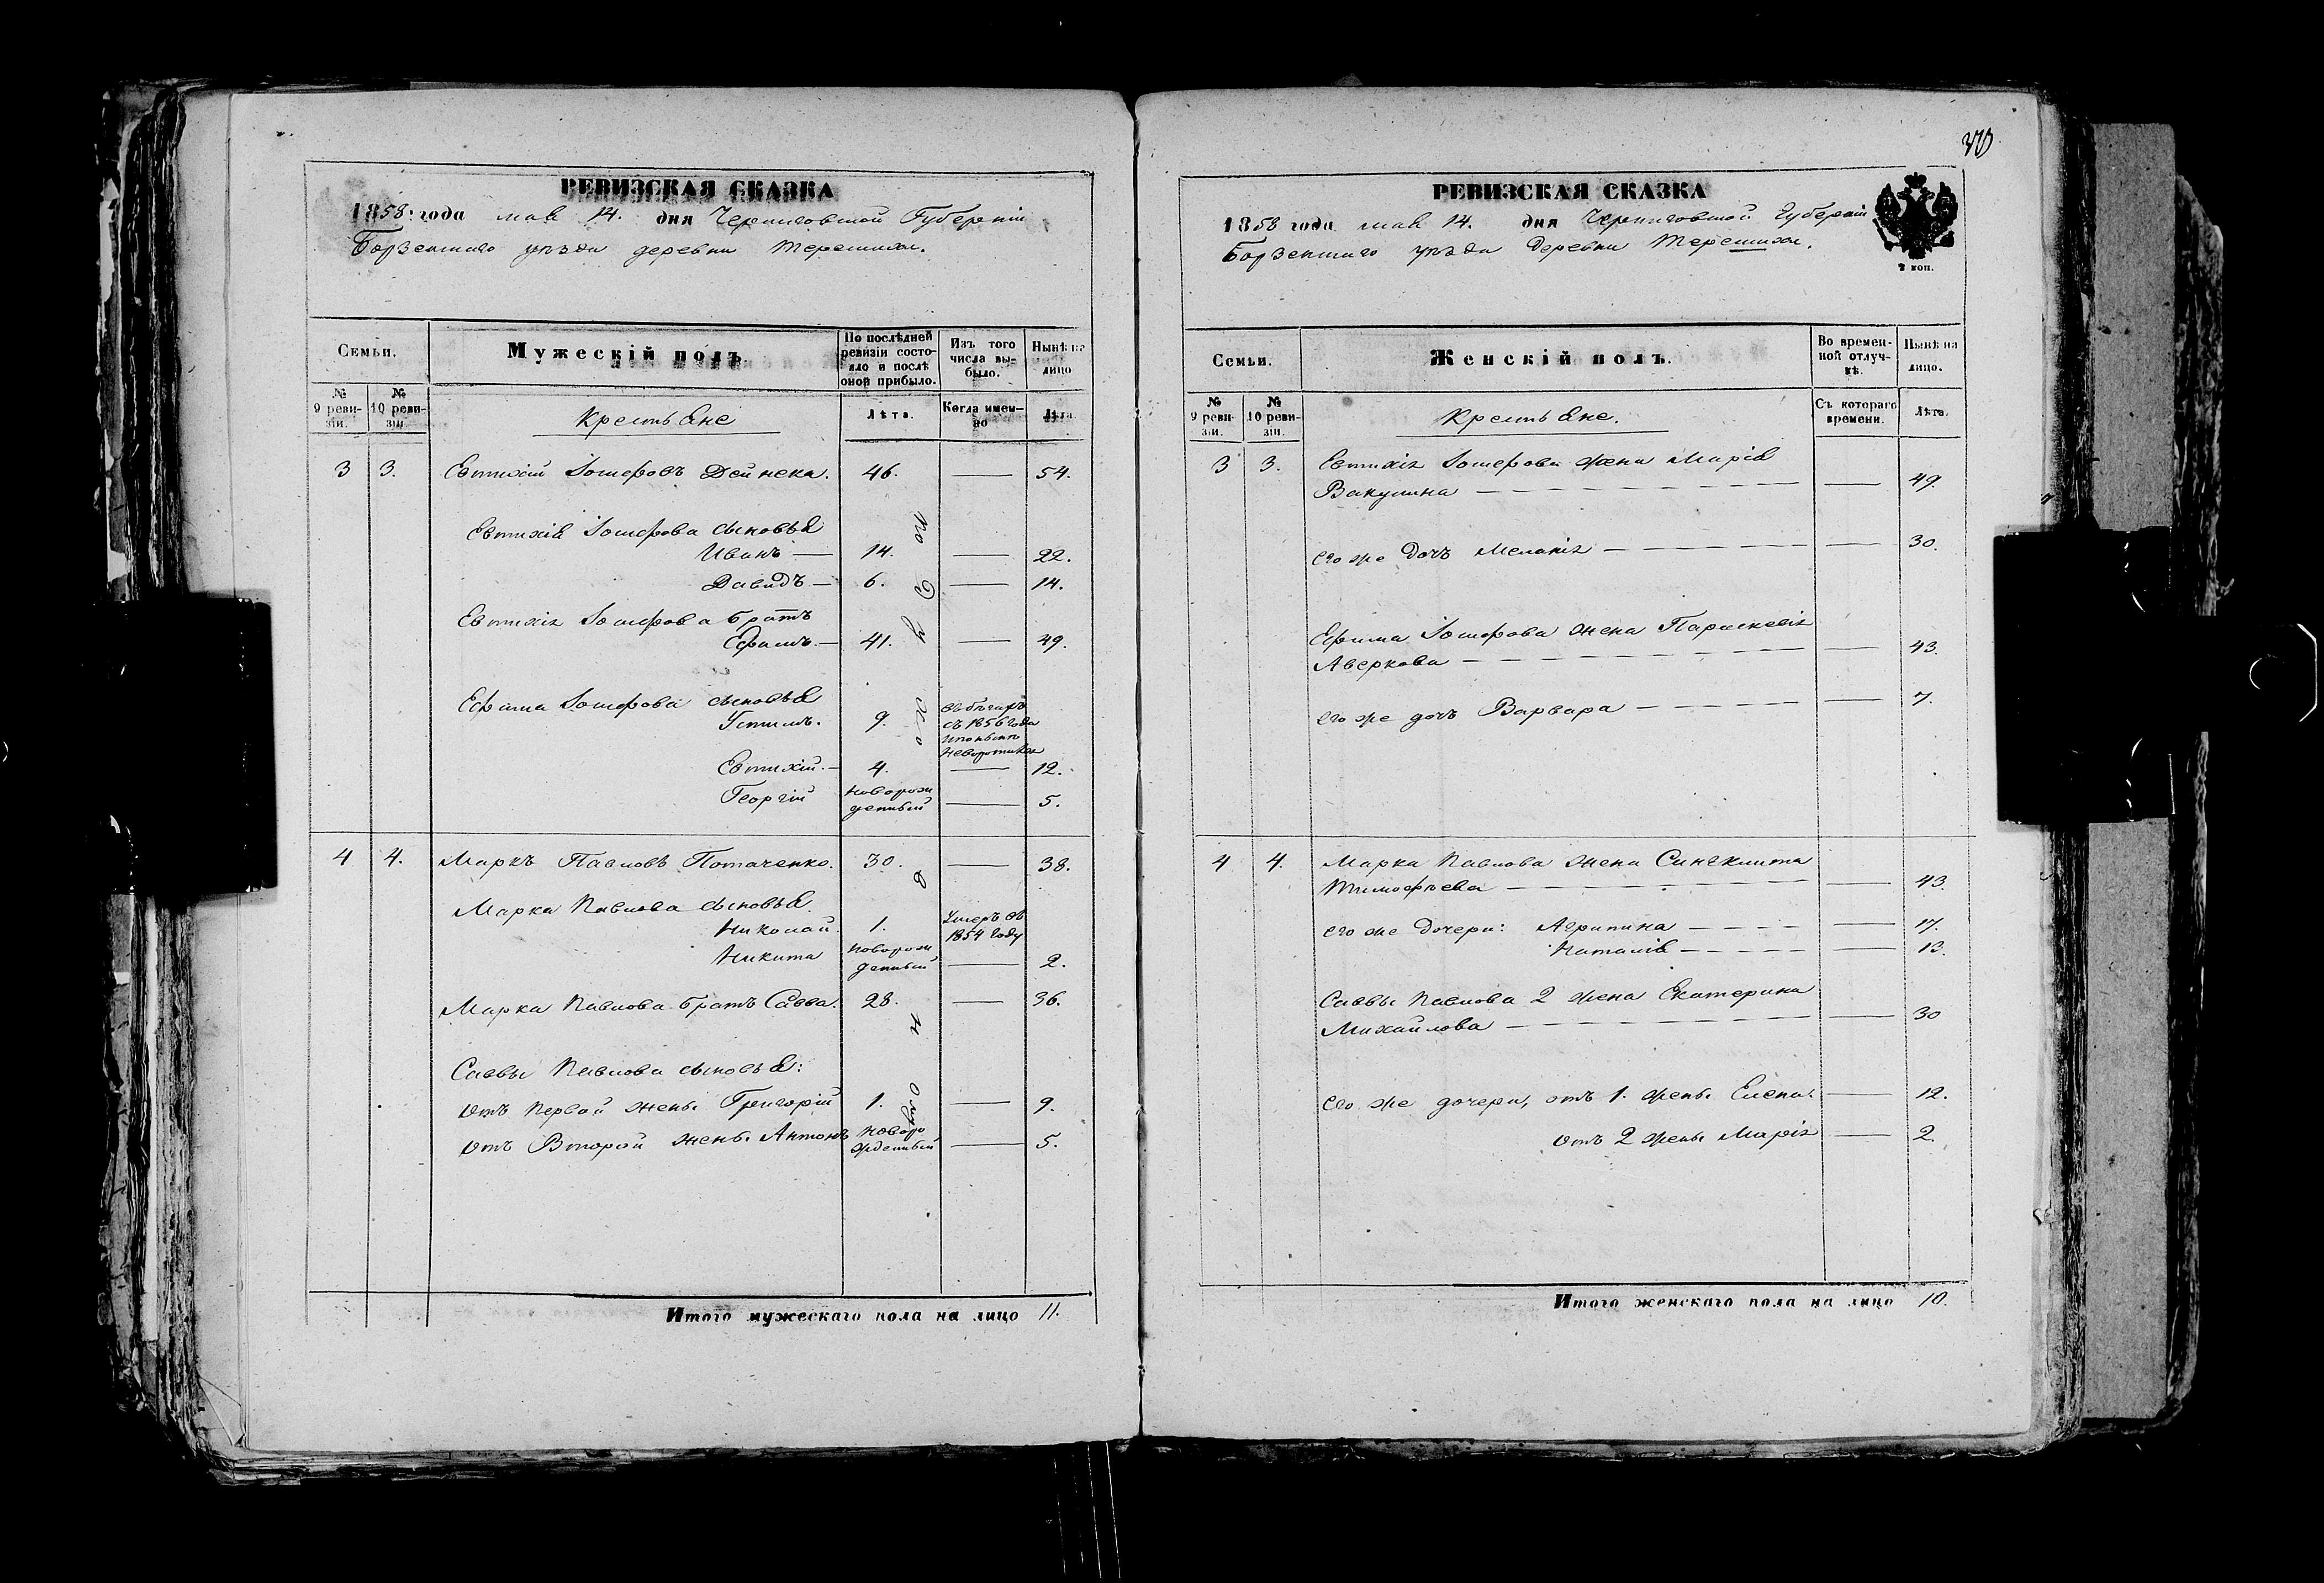 РЕВИЗСКАЯ СКАЗКА
1858: года мая 14. дня Черниговской Губерніи
Борзенскаго уѣзда деревни Терешихи.
Семьи.
Мужескій полъ.
По послѣдней ревизіи состо-
яло и послѣ
оной прибыло.
Изъ того
числа вы-
было.
Нынѣ на
лицо
№
9 реви-
зіи.
№
10 реви-
зіи
Крестьяне
Лѣта.
Когда имен-
но
Лѣта.
3 3. Евтихій Іосифовъ Дейнека. 46. — 54.
Евтихія Іосифова сыновья
Иванъ — 14. — 22.
Давидъ — 6. — 14.
Евтихія Іосифова братъ
Ефимъ. — 41. — 49.
Ефима Іосифова сыновья
Устимъ. 9.
въ бѣгахъ
съ 1856 года
Евтихій. — 4. — 12.
Георгій новорож
денный — 5.
4 4. Маркъ Павловъ Потаченко. 30. — 38.
Марка Павлова сыновья.
Николай. 1. Умеръ въ
1854 году
Никита новорож
денный — 2.
Марка Павлова братъ Савва. 28. — 36.
Саввы Павлова сыновья:
отъ Первой жены Григорій 1. — 9.
отъ Второй жены Антонъ новоро
жденный — 5.
Итого мужескаго пола на лицо 11.
РЕВИЗСКАЯ СКАЗКА
1858 года мая 14. дня Черниговской Губерніи
Борзенскаго уѣзда Деревни Терешихи.
2 коп.
Семьи.
Женскій полъ.
Во времен-
ной отлуч-
кѣ.
Нынѣ на
лицо.
№
9 реви-
зіи.
№
10 реви-
зіи.
Крестьяне.
Съ котораго
времени.
Лѣта.
3 3. Евтихія Іосифова жена Марія
Вакулина — — 49.
его же дочъ Меланія — — 30.
Ефима Іосифова жена Параскевія
Аверкова — — 43.
его же дочъ Варвара — — 7.
4 4. Марка Павлова жена Синклита
Тимофѣева — — 43.
его же дочери: Агрипина — — 17.
Наталія — — 13.
Саввы Павлова 2 жена Екатерина
Михайлова — — 30
его же дочери, отъ 1. жены Елена. — 12.
отъ 2 жены Марія — 2.
Итого женскаго пола на лицо 10.